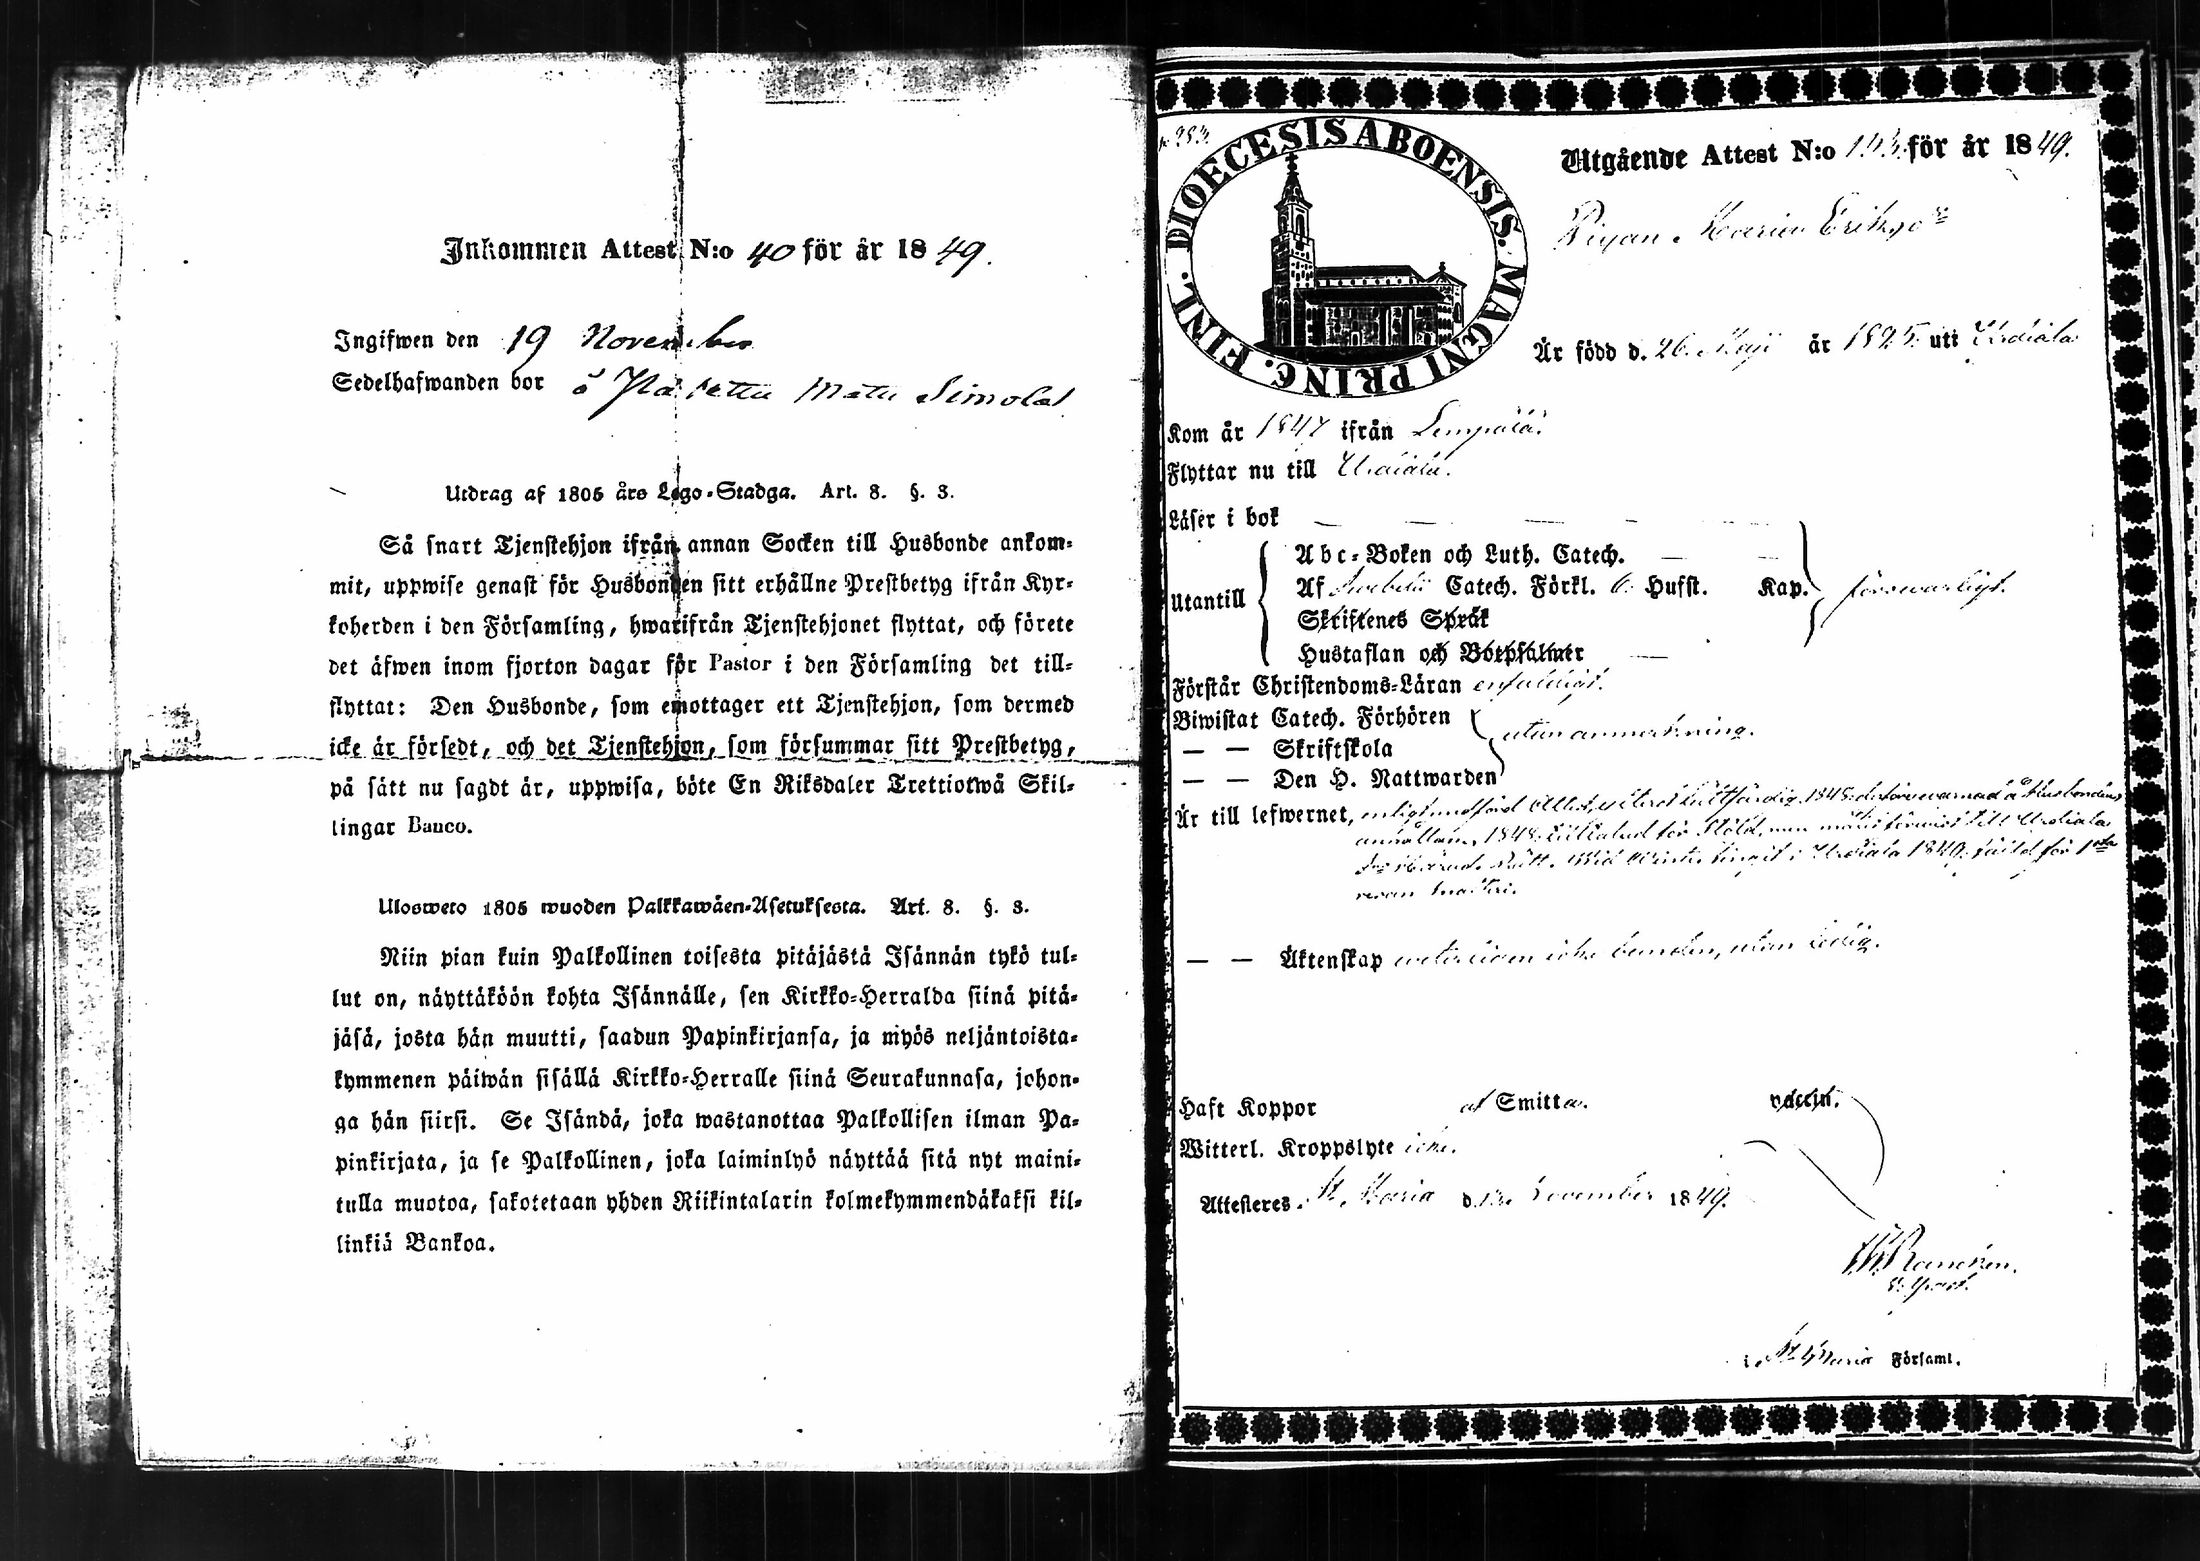 Inkommen Attest N:o 40 för år 1849.
Ingifwen den 19 November
Sedelhafwanden bor å Matu Simola
Utdrag af 1805 års Lego-Stadga. Art. 8. §. 3.
Så snart Tjenstehjon ifrån annan Socken till Husbonde ankom-
mit, uppwise genast för Husbonden sitt erhållne Prestbetyg ifrån Kyr-
koherden i den Församling, hwarifrån Tjenstehjonet flyttat, och förete
det äfwen inom fjorton dagar för Pastor i den Församling det till-
flyttat: Den Husbonde, som emottager ett Tjenstehjon, som dermed
icke är försedt, och det Tjenstehjon, som försummar sitt Prestbetyg,
på sätt nu sagdt är, uppwisa, böte En Riksdaler Trettiotwå Skil-
lingar Banco.
Ulosweto 1805 wuoden Palkkawäen-Asetuksesta. Art. 8. §. 3.
Niin pian kuin Palkollinen toisesta pitäjästä Isännän tykö tul-
lut on, näyttäköön kohta Isännälle, sen Kirkko-Herralda siinä pitä-
jäsä, josta hän muutti, saadun Papinkirjansa, ja myös neljäntoista-
kymmenen päiwän sisällä Kirkko-Herralle siinä Seurakunnasa, johon-
ga hän siirsi. Se Isändä, joka wastanottaa Palkollisen ilman Pa-
pinkirjata, ja se Palkollinen, joka laiminlyö näyttää sitä nyt maini-
tulla muotoa, sakotetaan yhden Riikintalarin kolmekymmendäkaksi kil-
linkiä Bankoa.
DIOECESIS ABOENSIS. MAGNI PRINC. FINL.
Utgående Attest N:o för år 1849.
Pigan Maria Eriksd:r
Är född d. 26 Maji år 1825 uti Urdiala
Kom år 1847 ifrån Lempäälä.
Flyttar nu till Urdiala.
Läser i bok — — — —
Utantill
Abc-Boken och Luth. Catech. — —
Af Svebelii Catech. Förkl. 6 Hufst. Kap. försvarligt.
Skriftenes Språk
Hustaflan och Botpsalmer —
Förstår Christendoms-Läran enfaldigt.
Biwistat Catech. Förhören
— — Skriftskola utan anmärkning.
— — Den H. Nattwarden
Är till lefwernet, enligt medförd Attest, 1848 å Husbondens
anmällan, 1848 tilltalad för stöld, men målet förvist till Urdiala
Härads Rätt. Wid Winter tinget i Urdiala 1849 fälld för 1sta
resan
— — Äktenskap weterligen icke bunden, utan ledig.
Haft Koppor af Smitta. vaccin.
Witterl. Kroppslyte icke.
Attesteres. St. Maria d. 13 November 1849.
Rancken.
V. Past.
i St. Maria Församl.